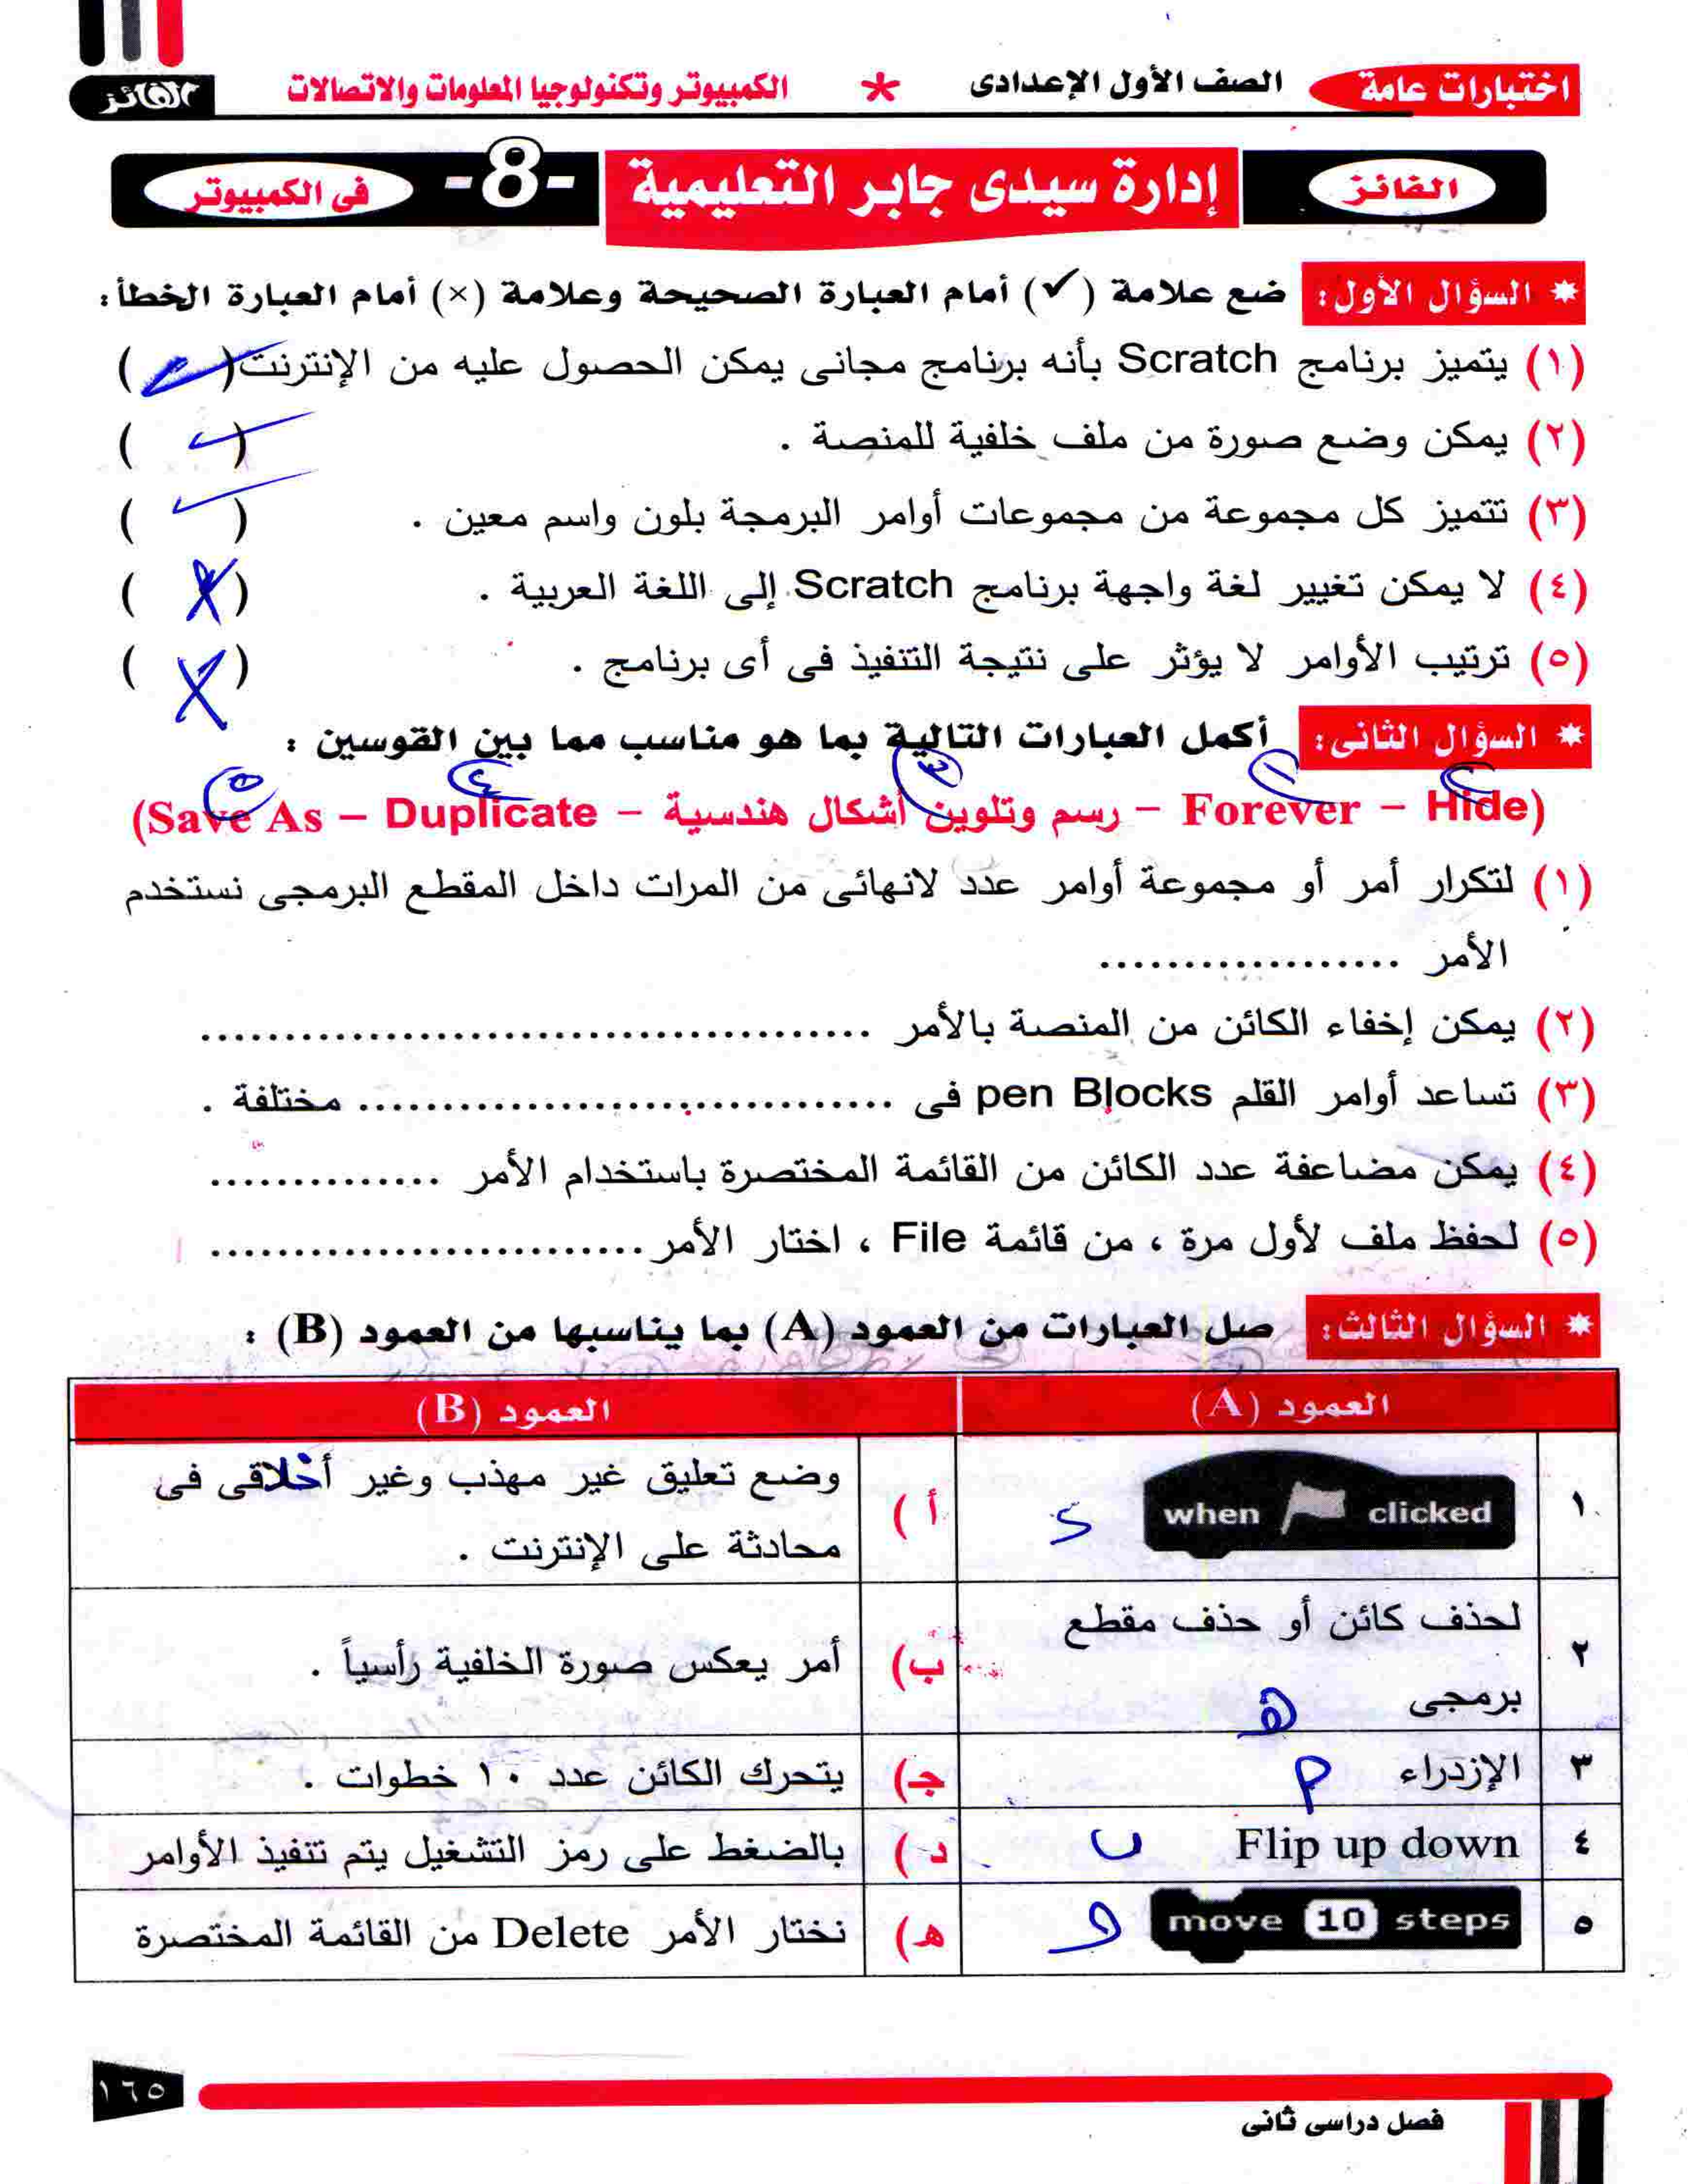 اختبارات عامة الصف الأول الإعدادى * الكمبيوتر وتكنولوجيا المعلومات والاتصالات الفائز
الفائز إدارة سيدى جابر التعليمية -8- فى الكمبيوتر
* السؤال الأول: ضع علامة (✓) أمام العبارة الصحيحة وعلامة (×) أمام العبارة الخطأ:
(١) يتميز برنامج Scratch بأنه برنامج مجانى يمكن الحصول عليه من الإنترنت (✓)
(٢) يمكن وضع صورة من ملف خلفية للمنصة . (✓)
(٣) تتميز كل مجموعة من مجموعات أوامر البرمجة بلون واسم معين . (✓)
(٤) لا يمكن تغيير لغة واجهة برنامج Scratch إلى اللغة العربية . (X)
(٥) ترتيب الأوامر لا يؤثر على نتيجة التنفيذ فى أى برنامج . (X)
* السؤال الثانى: أكمل العبارات التالية بما هو مناسب مما بين القوسين :
٢ ١ ٣ ٤ ٥
(Hide – Forever – رسم وتلوين أشكال هندسية – Duplicate – Save As)
(١) لتكرار أمر أو مجموعة أوامر عدد لانهائى من المرات داخل المقطع البرمجى نستخدم
الأمر ..................
(٢) يمكن إخفاء الكائن من المنصة بالأمر ........................................
(٣) تساعد أوامر القلم pen Blocks فى ................................ مختلفة .
(٤) يمكن مضاعفة عدد الكائن من القائمة المختصرة باستخدام الأمر ..............
(٥) لحفظ ملف لأول مرة ، من قائمة File ، اختار الأمر ..........................
* السؤال الثالث: صل العبارات من العمود (A) بما يناسبها من العمود (B) :
العمود (A) العمود (B)
١ when clicked د أ) وضع تعليق غير مهذب وغير أخلاقى فى
محادثة على الإنترنت .
٢ لحذف كائن أو حذف مقطع
برمجى ه ب) أمر يعكس صورة الخلفية رأسياً .
٣ الإزدراء أ جـ) يتحرك الكائن عدد ١٠ خطوات .
٤ Flip up down ب د) بالضغط على رمز التشغيل يتم تنفيذ الأوامر
٥ move 10 steps هـ) نختار الأمر Delete من القائمة المختصرة
١٦٥
فصل دراسى ثانى